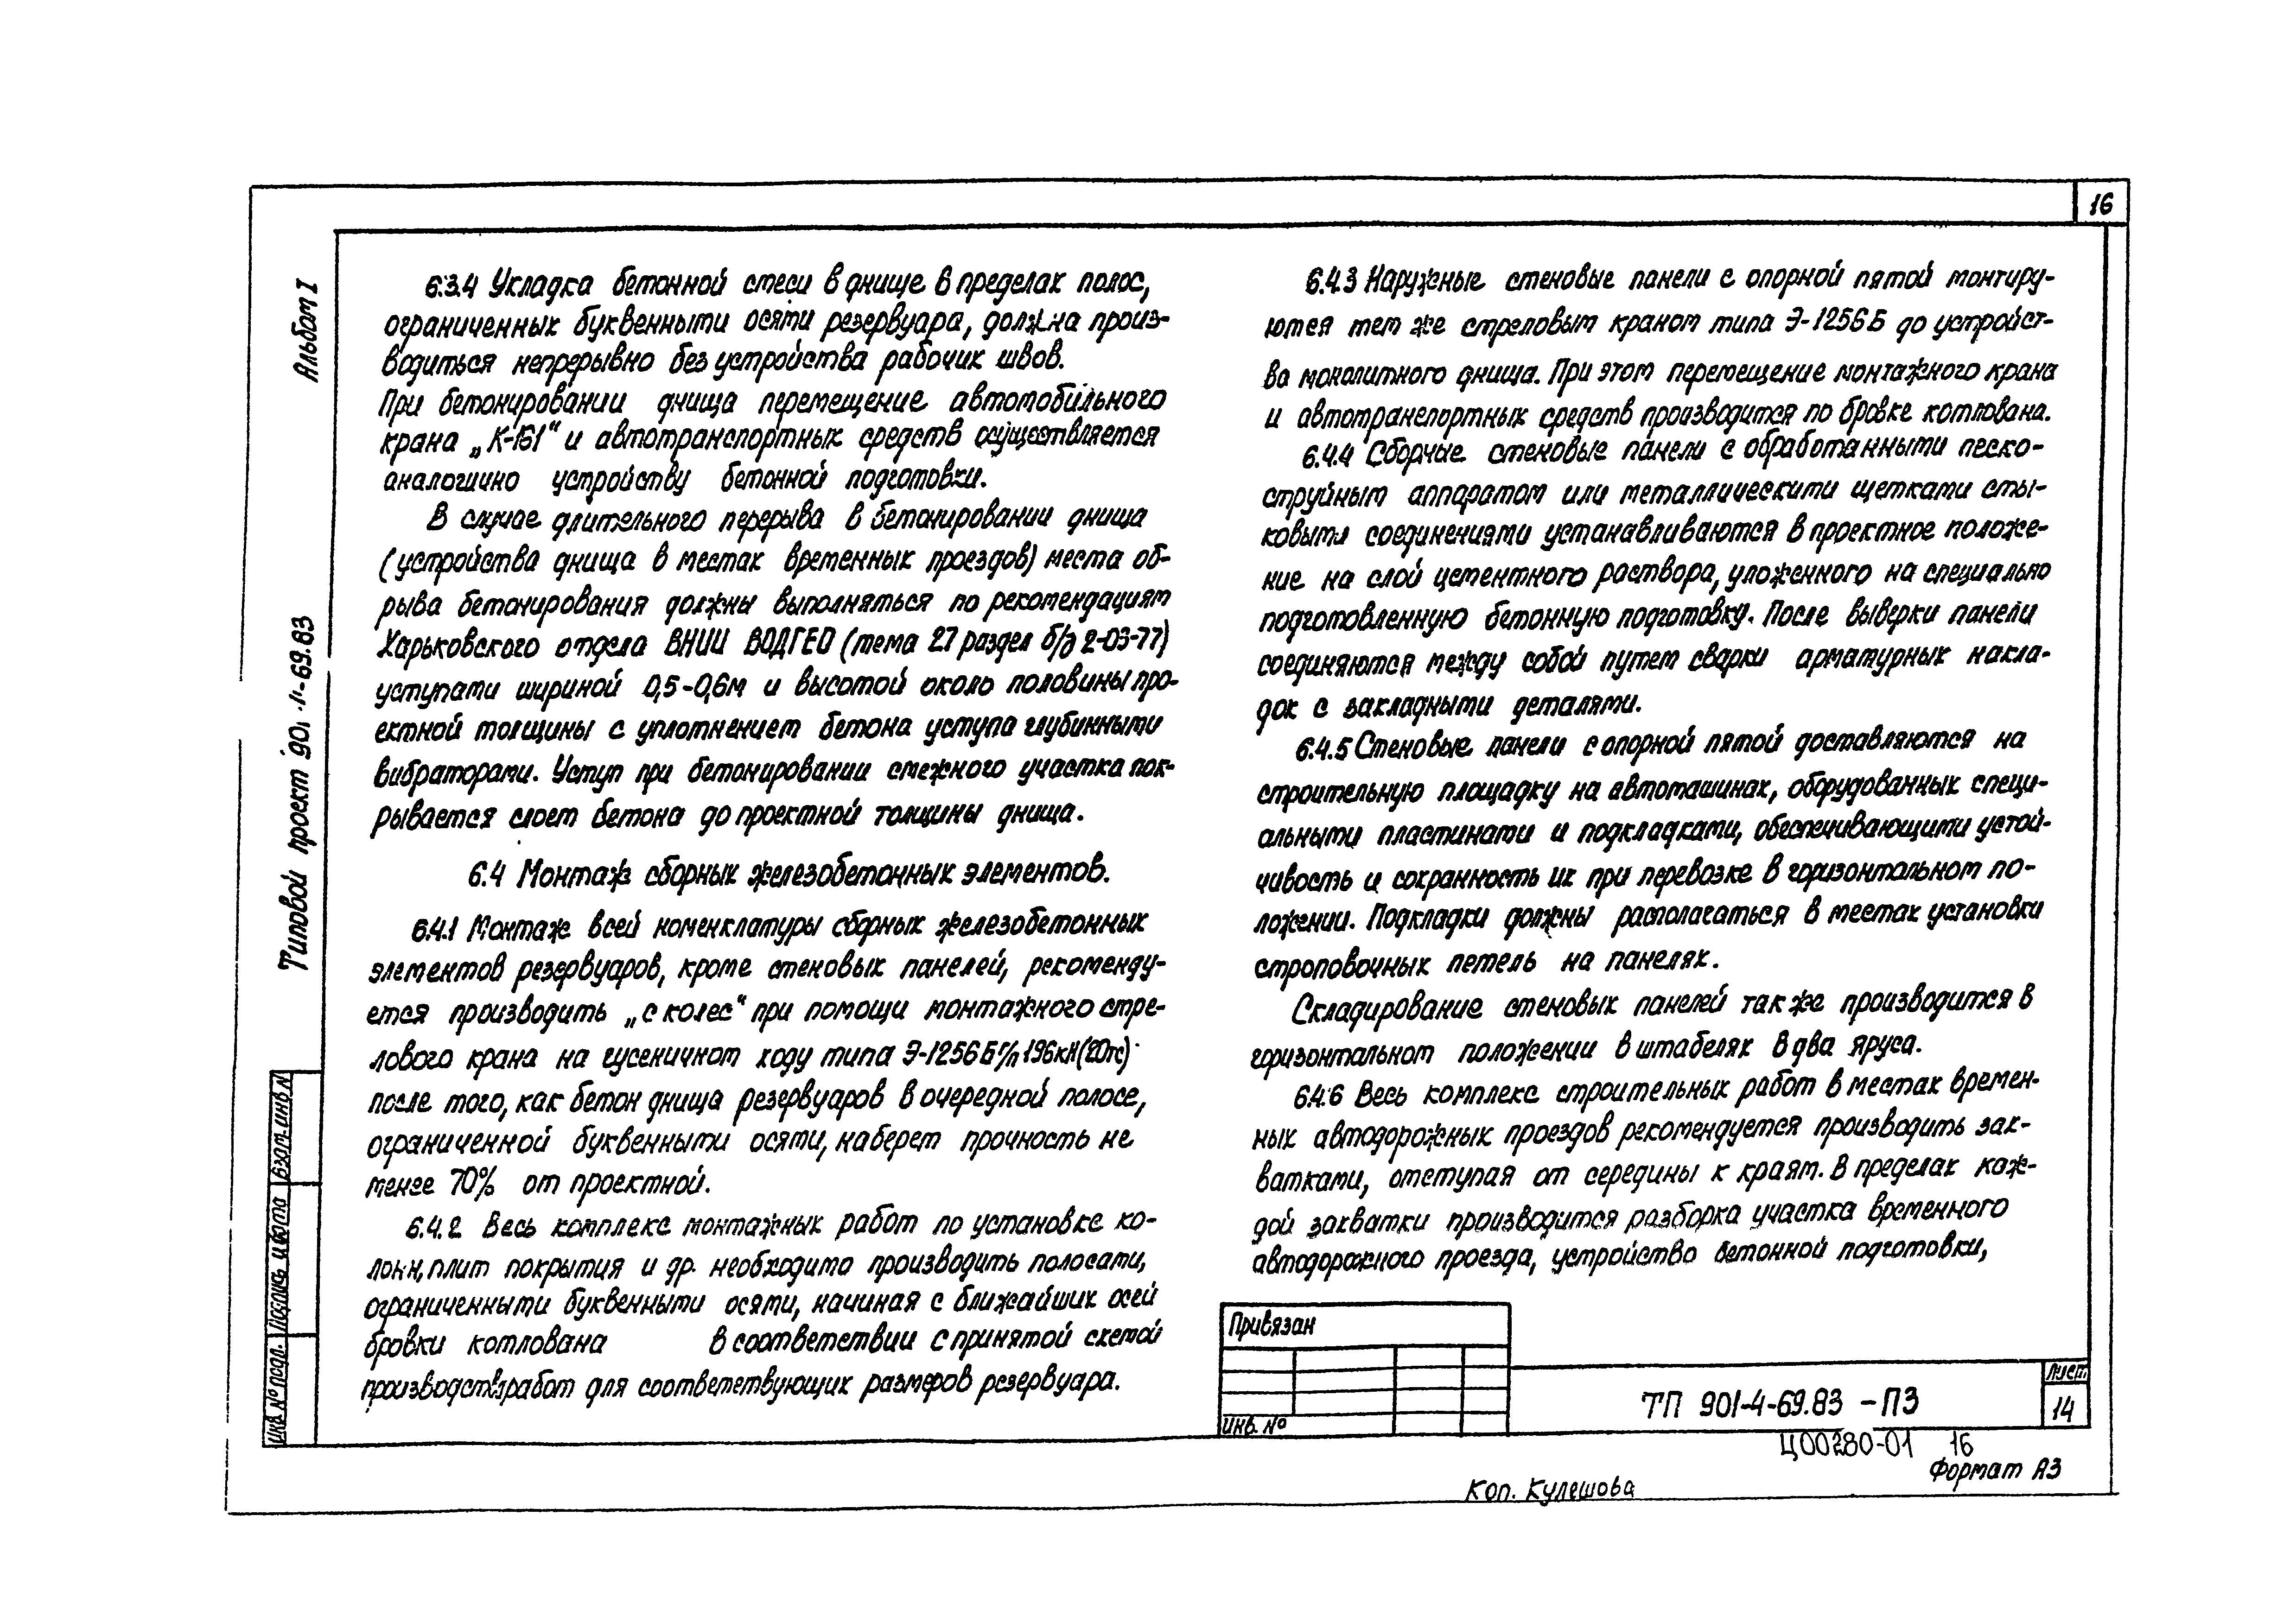 16
Альбом I
Типовой проект 901-4-69.83
6.3.4 Укладка бетонной смеси в днище в пределах полос,
ограниченных буквенными осями резервуара, должна произ-
водиться непрерывно без устройства рабочих швов.
При бетонировании днища перемещение автомобильного
крана „К-161" и автотранспортных средств осуществляется
аналогично устройству бетонной подготовки.
В случае длительного перерыва в бетонировании днища
(устройства днища в местах временных проездов) места об-
рыва бетонирования должны выполняться по рекомендациям
Харьковского отдела ВНИИ ВОДГЕО (тема 27 раздел б/д 2-03-77)
уступами шириной 0,5-0,6м и высотой около половины про-
ектной толщины с уплотнением бетона уступа глубинными
вибраторами. Уступ при бетонировании смежного участка пок-
рывается слоем бетона до проектной толщины днища.
6.4 Монтаж сборных железобетонных элементов.
6.4.1 Монтаж всей номенклатуры сборных железобетонных
элементов резервуаров, кроме стеновых панелей, рекоменду-
ется производить „с колес" при помощи монтажного стре-
лового крана на гусеничном ходу типа Э-1256Б г/п 196кН(20тс)
после того, как бетон днища резервуаров в очередной полосе,
ограниченной буквенными осями, наберет прочность не
менее 70% от проектной.
6.4.2 Весь комплекс монтажных работ по установке ко-
лонн, плит покрытия и др. необходимо производить полосами,
ограниченными буквенными осями, начиная с ближайших осей
бровки котлована в соответствии с принятой схемой
производства работ для соответствующих размеров резервуара.
6.4.3 Наружные стеновые панели с опорной пятой монтиру-
ются тем же стреловым краном типа Э-1256Б до устройст-
ва монолитного днища. При этом перемещение монтажного крана
и автотранспортных средств производится по бровке котлована.
6.4.4 Сборные стеновые панели с обработанными песко-
струйным аппаратом или металлическими щетками сты-
ковыми соединениями устанавливаются в проектное положе-
ние на слой цементного раствора, уложенного на специально
подготовленную бетонную подготовку. После выверки панели
соединяются между собой путем сварки арматурных накла-
док с закладными деталями.
6.4.5 Стеновые панели с опорной пятой доставляются на
строительную площадку на автомашинах, оборудованных специ-
альными пластинами и подкладками, обеспечивающими устой-
чивость и сохранность их при перевозке в горизонтальном по-
ложении. Подкладки должны располагаться в местах установки
строповочных петель на панелях.
Складирование стеновых панелей также производится в
горизонтальном положении в штабелях в два яруса.
6.4.6 Весь комплекс строительных работ в местах времен-
ных автодорожных проездов рекомендуется производить зах-
ватками, отступая от середины к краям. В пределах каж-
дой захватки производится разборка участка временного
автодорожного проезда, устройство бетонной подготовки,
Взам. инв N
Подпись и дата
Инв. № подл.
Привязан
Инв. №
ТП 901-4-69.83 -ПЗ
Лист
14
Ц00280-01 16
Формат А3
Коп. Кулешова